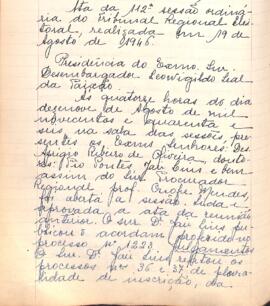 Ata da 112ª sessão ordiná-
ria do Tribunal Regional Elei-
toral, realizada em 19 de
Agosto de 1946.
Presidência do Exmo. Snr.
Desembargador Leovigildo Leal
da Paixão.
As quatorze horas do dia
dezenove de Agosto de mil
novecentos e quarenta e
seis na sala das sessões, pre-
sentes os Exmos Senhores: Des.
Ribeiro de Oliveira, douto-
res Pontes, Jair Lins e bem
assim do Procurador
Regional, prof. Onofre Mendes,
foi aberta a sessão. Lida e
aprovada a ata da reunião
anterior. O snr. Dr. Jair Lins pu-
blicou o acordam proferido no
processo nº 1223. Julgamentos
O snr. Dr. Jair Lins relatou os
processos nºs 36 e 37 de plura-
lidade de inscrição, da